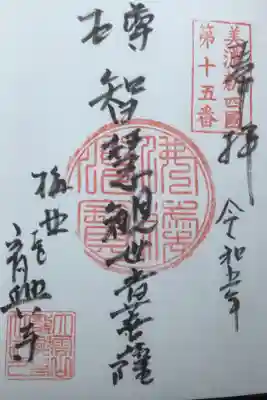 美濃新四國
第十五番
奉拝
令和五年
本尊
智慧観世音菩薩
佛法僧寶